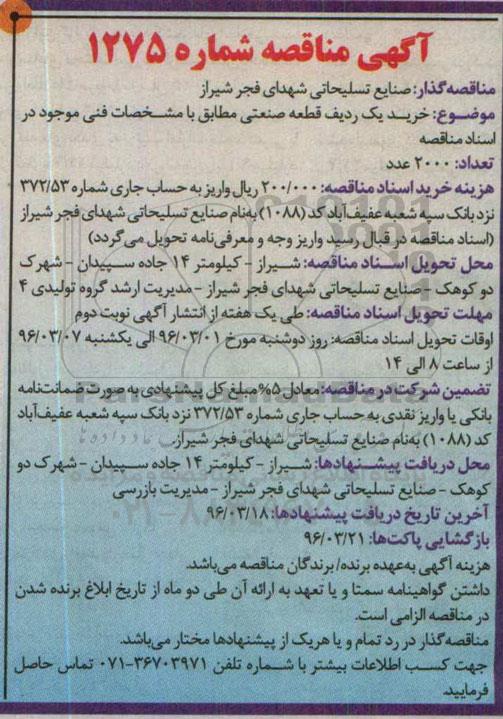 آگهی مناقصه شماره ۱۲۷۵
مناقصه‌گذار: صنایع تسلیحاتی شهدای فجر شیراز
موضوع: خرید یک ردیف قطعه صنعتی مطابق با مشخصات فنی موجود در
اسناد مناقصه
تعداد: ۲۰۰۰ عدد
هزینه خرید اسناد مناقصه: ۲۰۰/۰۰۰ ریال واریز به حساب جاری شماره ۳۷۲/۵۳
نزد بانک سپه شعبه عفیف‌آباد کد (۱۰۸۸) به‌نام صنایع تسلیحاتی شهدای فجر شیراز
(اسناد مناقصه در قبال رسید واریز وجه و معرفی‌نامه تحویل می‌گردد)
محل تحویل اسناد مناقصه: شیراز - کیلومتر ۱۴ جاده سپیدان - شهرک
دو کوهک - صنایع تسلیحاتی شهدای فجر شیراز - مدیریت ارشد گروه تولیدی ۴
مهلت تحویل اسناد مناقصه: طی یک هفته از انتشار آگهی نوبت دوم
اوقات تحویل اسناد مناقصه: روز دوشنبه مورخ ۹۶/۰۳/۰۱ الی یکشنبه ۹۶/۰۳/۰۷
از ساعت ۸ الی ۱۴
تضمین شرکت در مناقصه: معادل ۵% مبلغ کل پیشنهادی به صورت ضمانت‌نامه
بانکی یا واریز نقدی به حساب جاری شماره ۳۷۲/۵۳ نزد بانک سپه شعبه عفیف‌آباد
کد (۱۰۸۸) به‌نام صنایع تسلیحاتی شهدای فجر شیراز.
محل دریافت پیشنهادها: شیراز - کیلومتر ۱۴ جاده سپیدان - شهرک دو
کوهک - صنایع تسلیحاتی شهدای فجر شیراز - مدیریت بازرسی
آخرین تاریخ دریافت پیشنهادها: ۹۶/۰۳/۱۸
بازگشایی پاکت‌ها: ۹۶/۰۳/۲۱
هزینه آگهی به‌عهده برنده/ برندگان مناقصه می‌باشد.
داشتن گواهینامه سمتا و یا تعهد به ارائه آن طی دو ماه از تاریخ ابلاغ برنده شدن
در مناقصه الزامی است.
مناقصه‌گذار در رد تمام و یا هریک از پیشنهادها مختار می‌باشد.
جهت کسب اطلاعات بیشتر با شماره تلفن ۳۶۷۰۳۹۷۱-۰۷۱ تماس حاصل
فرمایید.